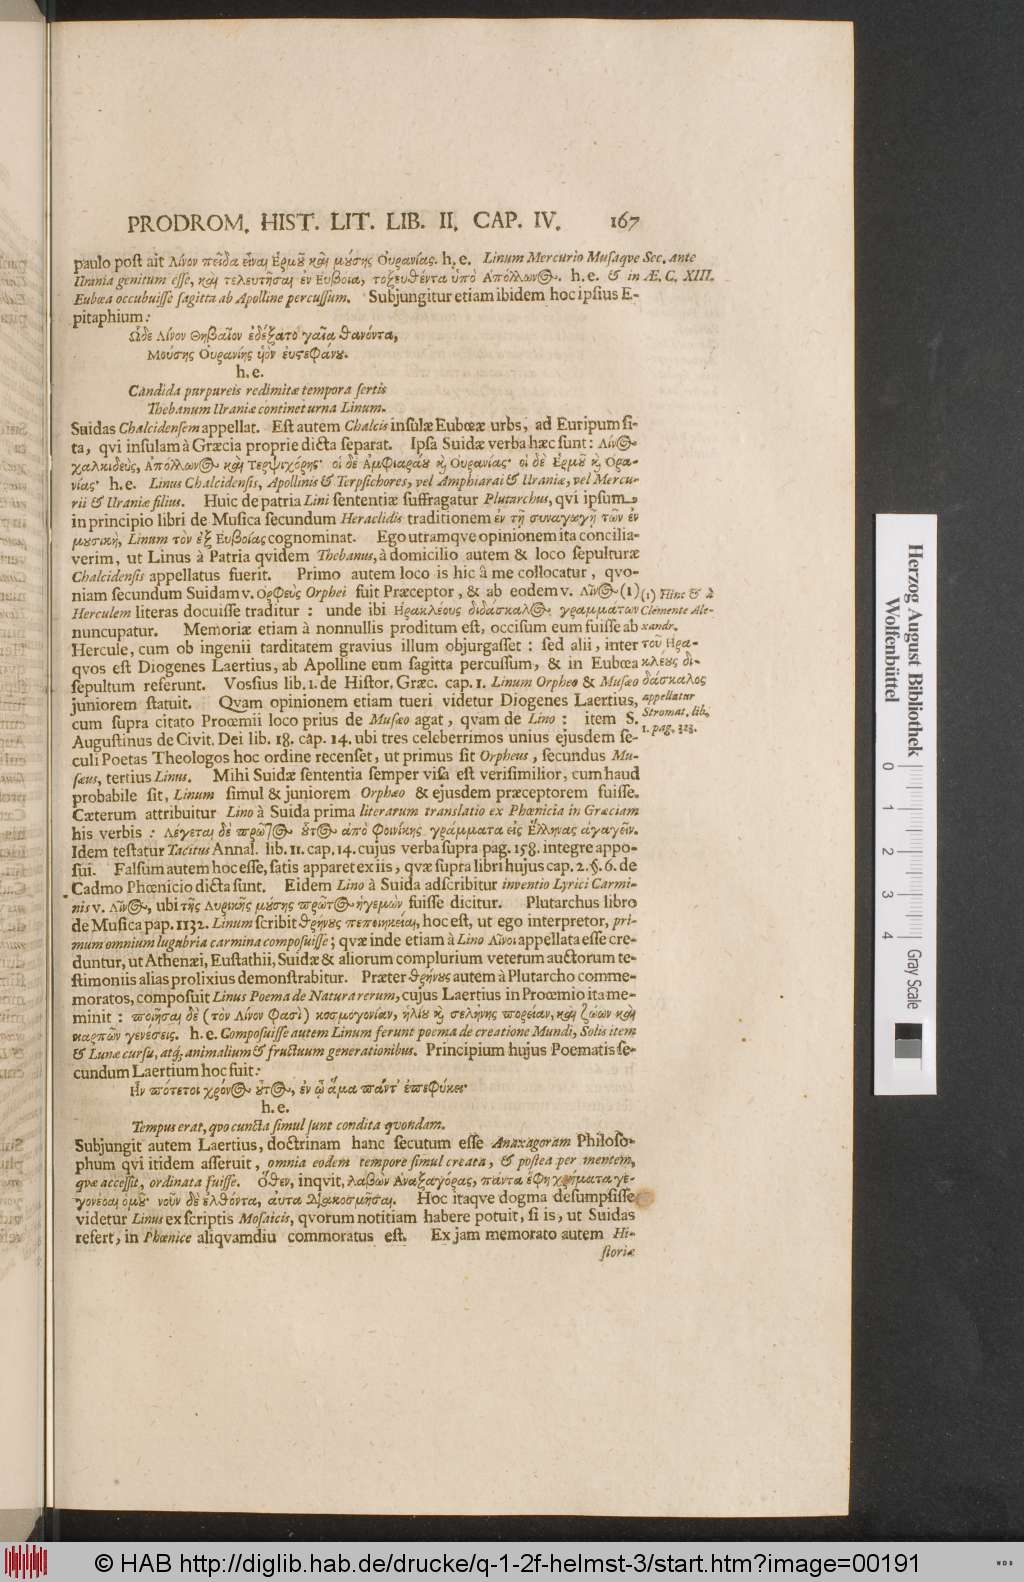 PRODROM. HIST. LIT. LIB. II. CAP. IV. 167
paulo post ait Λίνον παῖδα εἶναι Ἑρμοῦ καὶ μούσης Οὐρανίας. h. e. Linum Mercurio Musaqve
Urania genitum esse, καὶ τελευτῆσαι ἐν Ευβοία, τοξευθέντα ὑπὸ Απόλλων@. h. e. & in
Eubœa occubuisse sagitta ab Apolline percussum. Subjungitur etiam ibidem hoc ipsius E-
pitaphium:
Sec. Ante
Æ. C. XIII.
Ὧδε Λίνον Θηβαῖον ἐδέξατο γαῖα θανόντα,
Μούσης Οὐρανίης ὑὸν ἐυστεφάνου.
h. e.
Candida purpureis redimitæ tempora sertis
Thebanum Uraniæ continet urna Linum.
Suidas Chalcidensem appellat. Est autem Chalcis insulæ Eubœæ urbs, ad Euripum si-
ta, qvi insulam à Græcia proprie dicta separat. Ipsa Suidæ verba hæc sunt: Λίν@
χαλκιδεὺς, Ἀπόλλων@ καὶ Τερψιχόρης· οἱ δὲ Ἀμφιαράου κ̀ Οὐρανίας· οἱ δὲ Ἑρμοῦ κ̀ Οὐρα-
νίας· h. e. Linus Chalcidensis, Apollinis & Terpsichores, vel Amphiarai & Uraniæ, vel Mercu-
rii & Uraniæ filius. Huic de patria Lini sententiæ suffragatur Plutarchus, qvi ipsum
in principio libri de Musica secundum Heraclidis traditionem ἐν τῇ συναγωγῇ τῶν ἐν
μουσικῇ, Linum τὸν ἐξ Ευβοίας cognominat. Ego utramqve opinionem ita concilia-
verim, ut Linus à Patria qvidem Thebanus, à domicilio autem & loco sepulturæ
Chalcidensis appellatus fuerit. Primo autem loco is hic â me collocatur, qvo-
niam secundum Suidam v. Ορφεὺς Orphei fuit Præceptor, & ab eodem v. Λῖν@ (1)
Herculem literas docuisse traditur: unde ibi Ηρακλέους διδάσκαλ@ γραμμάτων
nuncupatur. Memoriæ etiam à nonnullis proditum est, occisum eum fuisse ab
Hercule, cum ob ingenii tarditatem gravius illum objurgasset: sed alii, inter
qvos est Diogenes Laertius, ab Apolline eum sagitta percussum, & in Eubœa
sepultum referunt. Vossius lib. 1. de Histor. Græc. cap. 1. Linum Orpheo & Musæo
juniorem statuit. Qvam opinionem etiam tueri videtur Diogenes Laertius,
cum supra citato Proœmii loco prius de Musæo agat, qvam de Lino: item S.
Augustinus de Civit. Dei lib. 18. cap. 14. ubi tres celeberrimos unius ejusdem se-
culi Poetas Theologos hoc ordine recenset, ut primus sit Orpheus, secundus Mu-
sæus, tertius Linus. Mihi Suidæ sententia semper visa est verisimilior, cum haud
probabile sit, Linum simul & juniorem Orphæo & ejusdem præceptorem fuisse.
Cæterum attribuitur Lino à Suida prima literarum translatio ex Phœnicia in Græciam
his verbis: Λέγεται δὲ πρῶτ@ οὗτ@ ἀπὸ Φοινίκης γράμματα εἰς Ἕλληνας ἀγαγεῖν.
Idem testatur Tacitus Annal. lib. 11. cap. 14. cujus verba supra pag. 158. integre appo-
sui. Falsum autem hoc esse, satis apparet ex iis, qvæ supra libri hujus cap. 2. §. 6. de
Cadmo Phœnicio dicta sunt. Eidem Lino à Suida adscribitur inventio Lyrici Carmi-
nis v. Λῖν@, ubi τῆς Λυρικῆς μούσης πρῶτ@ ἡγεμὼν fuisse dicitur. Plutarchus libro
de Musica pap. 1132. Linum scribit θρήνους πεποιηκέναι, hoc est, ut ego interpretor, pri-
mum omnium lugubria carmina composuisse; qvæ inde etiam à Lino Λῖνοι appellata esse cre-
duntur, ut Athenæi, Eustathii, Suidæ & aliorum complurium veterum auctorum te-
stimoniis alias prolixius demonstrabitur. Præter θρήνους autem à Plutarcho comme-
moratos, composuit Linus Poema de Natura rerum, cujus Laertius in Proœmio ita me-
minit: ποιῆσαι δὲ (τὸν Λίνον Φασὶ) κοσμογονίαν, ἡλίου κ̀ σελήνης πορείαν, καὶ ζώων καὶ
καρπῶν γενέσεις. h. e. Composuisse autem Linum ferunt poema de creatione Mundi, Solis item
& Lunæ cursu, atq; animalium & fructuum generationibus. Principium hujus Poematis se-
cundum Laertium hoc fuit:
Ην πότε τοι χρόν@ οὗτ@, ἐν ᾧ ἅμα πάντ' ἐπεφύκει·
h. e.
Tempus erat, qvo cuncta simul sunt condita qvondam.
Subjungit autem Laertius, doctrinam hanc secutum esse Anaxagoram Philoso-
phum qvi itidem asseruit, omnia eodem tempore simul creata, & postea per mentem,
qvæ accessit, ordinata fuisse. Ὅθεν, inqvit, λαβὼν Ἀναξαγόρας, πάντα ἔφη χρήματα γε-
γονέναι ὁμοῦ· νοῦν δὲ ἐλθόντα, ἀυτα διακοσμῆσαι. Hoc itaqve dogma desumpsisse
videtur Linus ex scriptis Mosaicis, qvorum notitiam habere potuit, si is, ut Suidas
refert, in Phœnice aliqvamdiu commoratus est. Ex jam memorato autem Hi-
storiæ
(1) Hinc & à
Clemente Ale-
xandr.
τοῦ Ηρα-
κλέους δι-
δάσκαλος
appellatur
Stromat. lib.
1. pag. 323.
Herzog August Bibliothek
Wolfenbüttel
0 1 2 3 4
Gray Scale
© HAB http://diglib.hab.de/drucke/q-1-2f-helmst-3/start.htm?image=00191
WDB